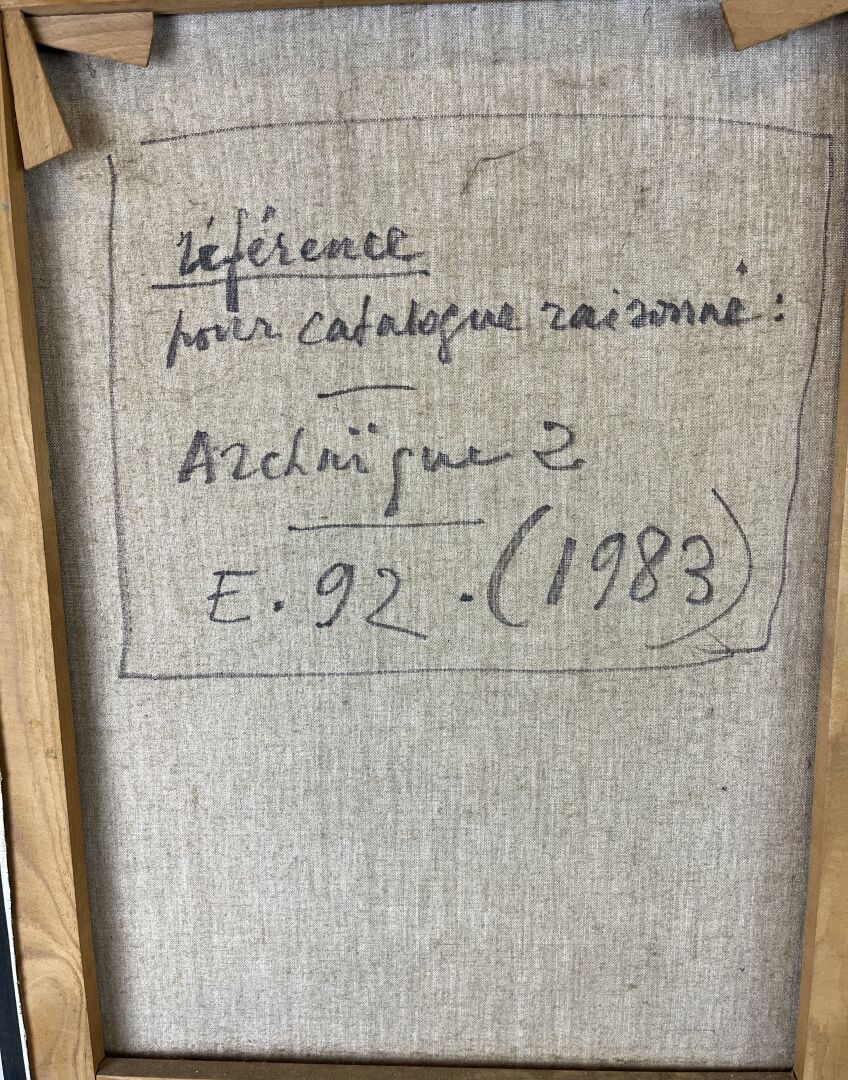 référence
pour catalogue raisonné :
Archaïque 2
E. 92 . (1983)